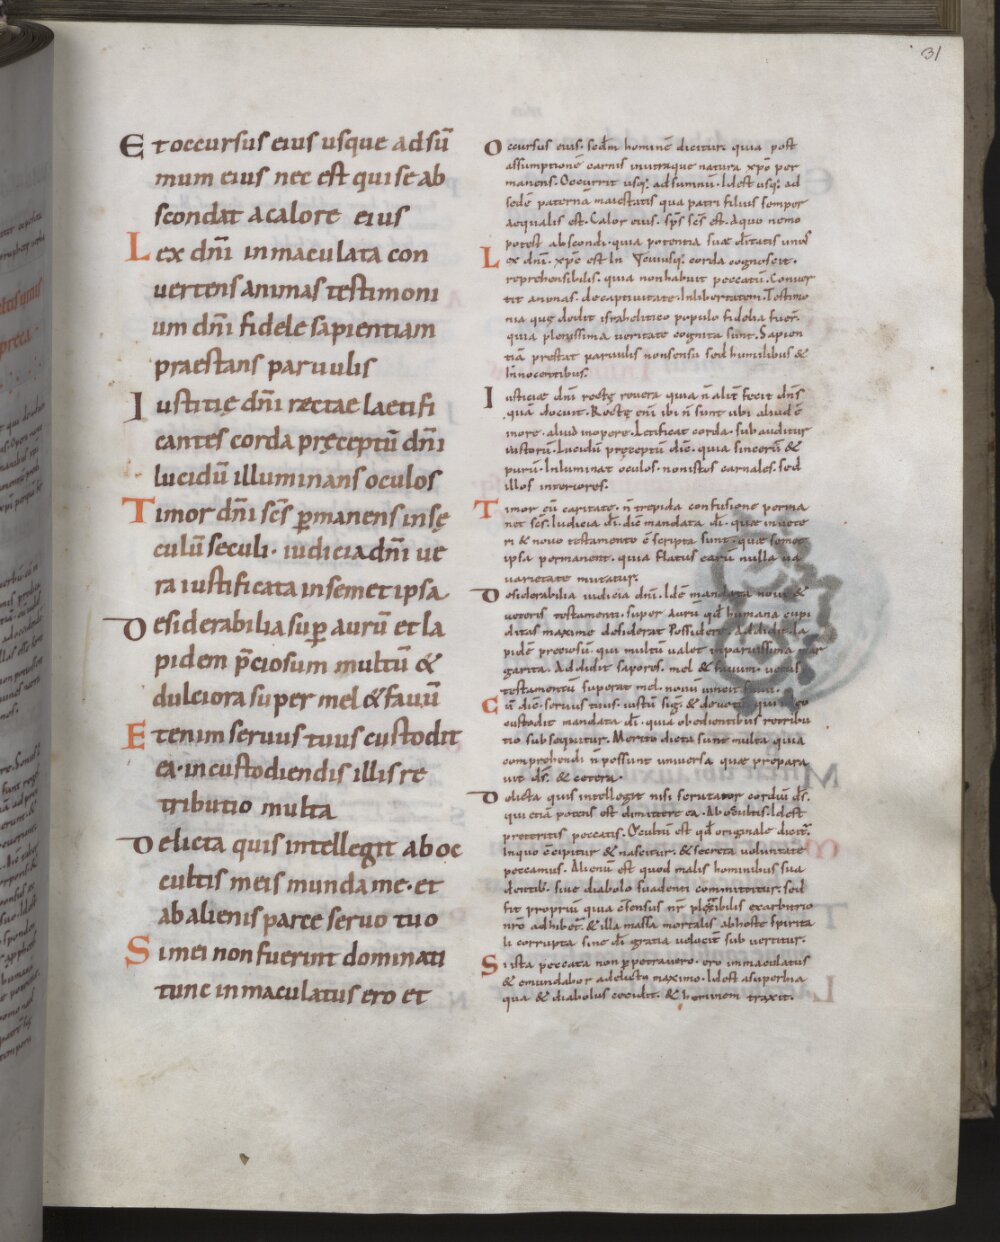 31
Et occursus eius usque adsū
mum eius nec est qui se ab
scondat acalore eius
Lex dn̄i inmaculata con
uertens animas testimoni
um dn̄i fidele sapientiam
praestans paruulis
Iustitię dn̄i rectae laetifi
cantes corda pręceptū dn̄i
lucidū illuminans oculos
Timor dn̄i sc̄s ꝑmanens insę
culū seculi · iudicia dn̄i ue
ra iustificata insemet ipsa
Desiderabilia suꝑ aurū et la
pidem p̄ciosum multū &
dulciora super mel & fauū
Etenim seruus tuus custodit
ea · incustodiendis illis re
tributio multa
Delicta quis intellegit aboc
cultis meis munda me · et
abalienis parce seruo tuo
Si mei non fuerint dominati
tunc inmaculatus ero et
Occursus eius · secdm hominē dicitur · quia post
assumptionē carnis inutraque natura xp̄c per
manens. Occurrit usq; adsummū · Idest usq; ad
sedē paternā maiestatis qua patri filius semper
aequalis est. Calor eius · sp̄s sc̄s est. Aquo nemo
potest abscondi · quia potentia suae d̄itatis unus
Lex dn̄i · xp̄c est In Yciuusq; corda cognoscit ·
reprehensibilis · quia nonhabuit peccatū. Conuer
tit animas · decaptiuitate · Inlibertatem. Testimo
nia quę dedit israhelitico populo fidelia fuer̄
quia plenissima ueritate cognita sunt. Sapien
tiā prestat paruulis nonsensu sed humilibus &
Innocentibus.
Iusticiae dn̄i rectę reuera quia n̄ alit̄ fecit dn̄s
quā docuit. Rectę eni ibi n̄ sunt ubi aliud ē
more · aliud inopere. Letificat corda · subauditur
iustorū. Lucidū pręceptū diē · quia sincerū &
purū. Inluminat oculos · nonistos carnales · sed
illos interiores.
Timor cū caritate · n̄ trepida confusione perma
net sc̄s. Iudicia d̄i. diē mandata d̄i · quae inuete
ri & nouo testamento ē scripta sunt · quae semet
ipsa permanent · quia status earū nulla ua
varietate mutatur.
Desiderabilia iudicia dn̄i. Idē mandata noui &
ueteris testamenti · super aurū qd̄ humana cupi
ditas maxime desiderat Possidere. Addidit la
pidē preciosū · qui multū ualet inparuissima mar
garita. Addidit sapores · mel & fauum · uetus
testamentū superat mel · nouū uincit fauū ·
Cū diē · seruus tuus · iustū sig; & deuotū qui
custodit mandata d̄i · quia obedientibus retribu
tio subsequitur. Merito dicta sunt multa quia
comprehendi n̄ possunt uniuersa quae prepara
uit d̄s. & cetera ·
Delicta quis intellegit nisi scrutator cordiū d̄s.
qui etiā potens est dimittere ea. Aboccultis · Idest
preteritis peccatis. Ocultū est qd̄ originale dicit̄.
Inquo c̄cipitur & nascitur · & secreta uoluntate
peccamus. Alienū est quod malis hominibus sua
dentib; siue diabolo suadenti committitur · sed
fit propriū quia c̄sensus nr̄ plectibilis excerbrio
nr̄o adhibet̄. & illa massa mortalis abhoste spirita
li corrupta sine d̄i gratia uelocit̄ sub uertitur ·
Si ista peccata non ꝑpetrauero · ero inmaculatus
& emundabor adelicto maximo · Idest asuperbia
qua & diabolus cecidit · & hominem traxit ·